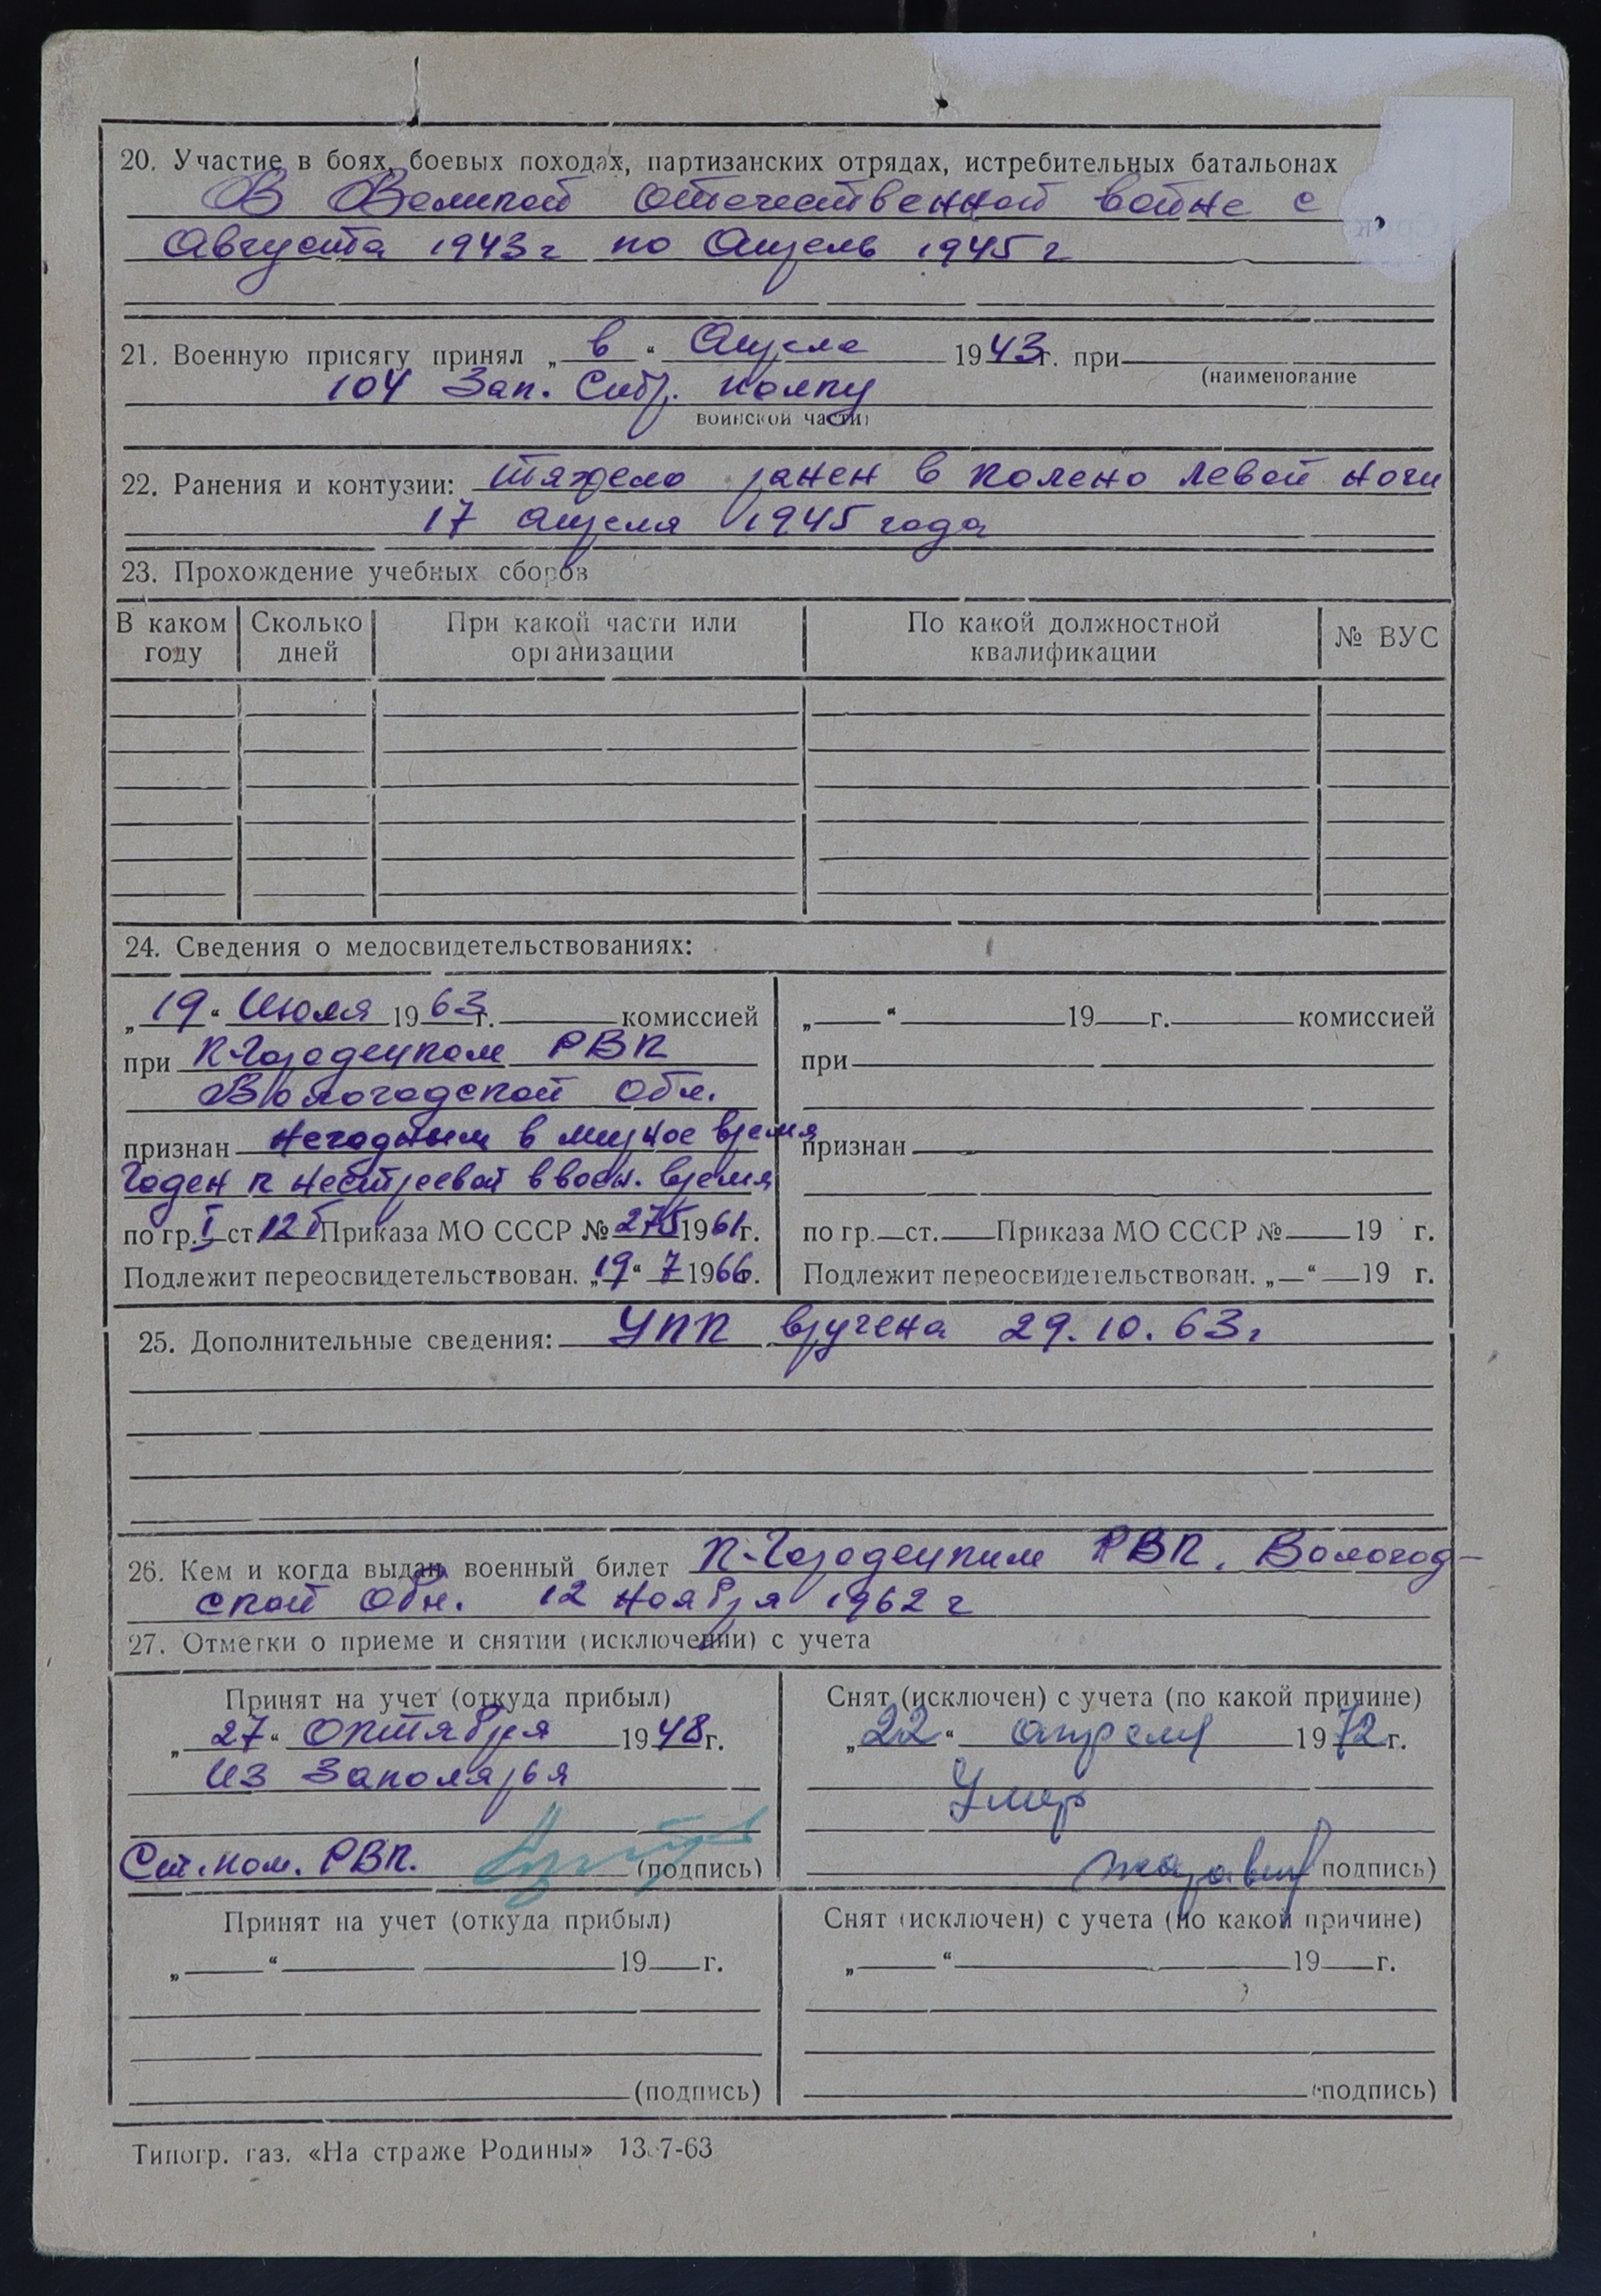 20. Участие в боях, боевых походах, партизанских отрядах, истребительных батальонах
В Великой отечественной войне с
Августа 1943 г по Апрель 1945 г
21. Военную присягу принял „ в “ Апреле 1943 г. при
(наименование
104 Зап. Стр. полку
воинской части)
22. Ранения и контузии: тяжело ранен в колено левой ноги
17 апреля 1945 года
23. Прохождение учебных сборов
В каком году
Сколько дней
При какой части или организации
По какой должностной квалификации
№ ВУС
24. Сведения о медосвидетельствованиях:
„19“ Июля 1963 г. комиссией
при К-Городецком РВК
Вологодской обл.
признан негодным в мирное время
Годен к нестроевой в воен. время
по гр. I ст. 12б Приказа МО СССР № 275 1961 г.
Подлежит переосвидетельствован. „19“ 7 1966 г.
„ “ 19 г. комиссией
при
признан
по гр. ст. Приказа МО СССР № 19 г.
Подлежит переосвидетельствован. „ “ 19 г.
25. Дополнительные сведения: УПК вручена 29.10.63 г
26. Кем и когда выдан военный билет К-Городецким РВК, Вологод-
ской обл. 12 ноября 1962 г
27. Отметки о приеме и снятии (исключении) с учета
Принят на учет (откуда прибыл)
„27“ октября 1948 г.
из Заполярья
Ст. пом. РВК. (подпись)
Снят (исключен) с учета (по какой причине)
„22“ апреля 1972 г.
Умер
(подпись)
Принят на учет (откуда прибыл)
„ “ 19 г.
(подпись)
Снят (исключен) с учета (по какой причине)
„ “ 19 г.
(подпись)
Типогр. газ. «На страже Родины» 13-7-63